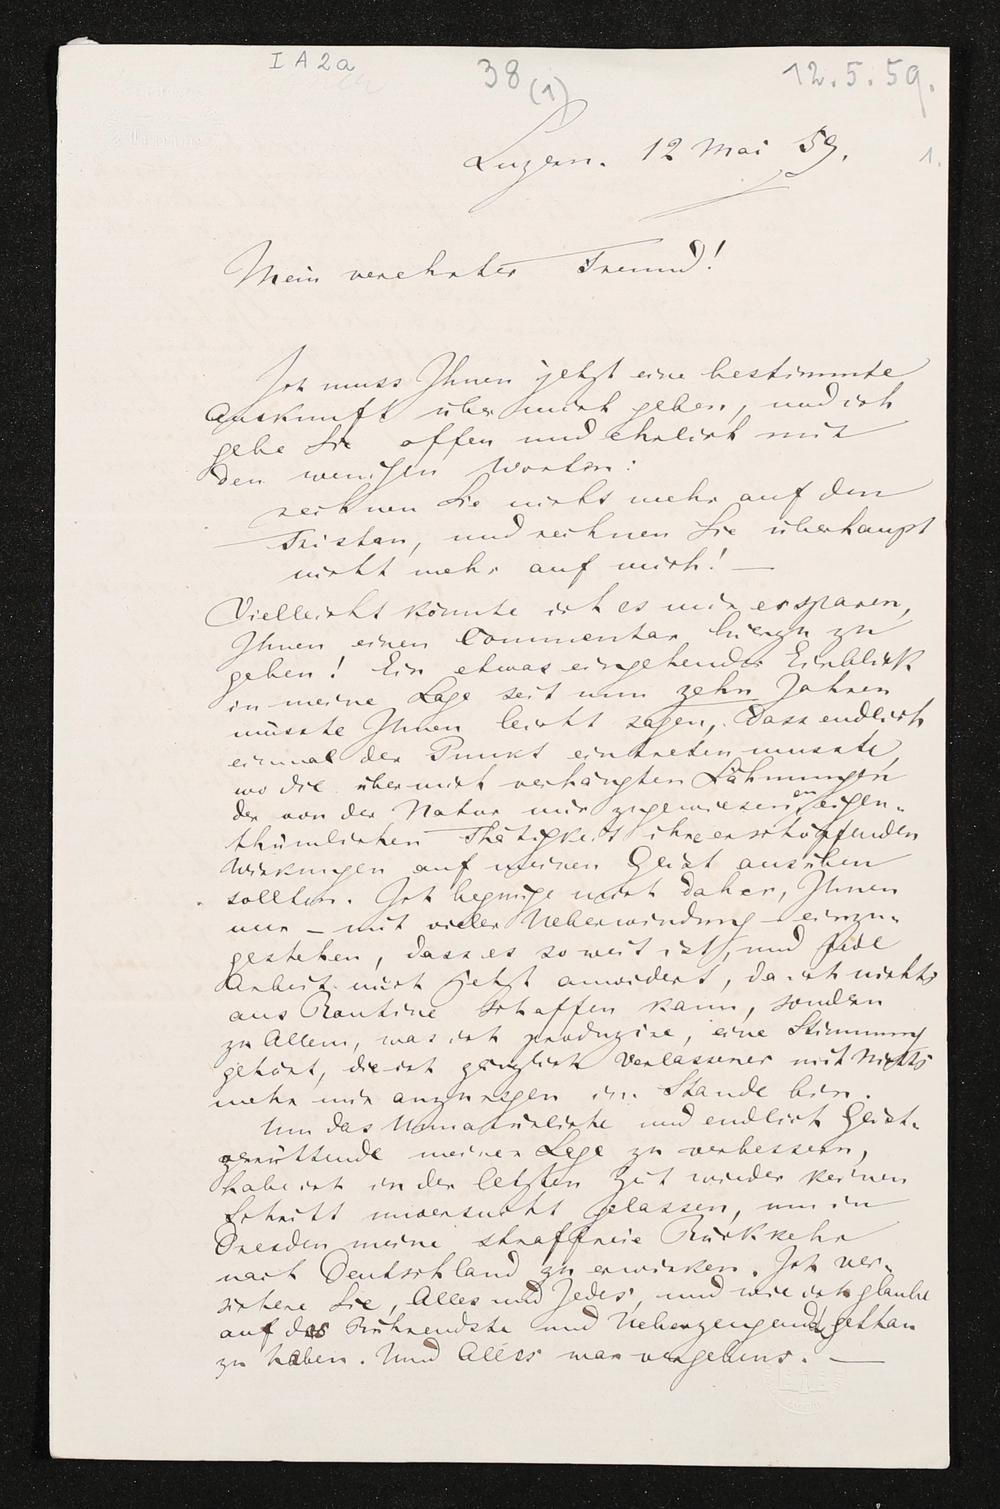 I A 2a
38 (1)
12.5.59.
Luzern. 12 Mai 59.
1.
Mein verehrter Freund!
Ich muss Ihnen jetzt eine bestimmte
Auskunft über mich geben, und ich
gebe sie offen und ehrlich mit
den wenigen Worten:
rechnen Sie nicht mehr auf den
Tristan, und rechnen Sie überhaupt
nicht mehr auf mich! —
Vielleicht könnte ich es mir ersparen,
Ihnen einen Commentar hierzu zu
geben! Ein etwas eingehender Einblick
in meine Lage seit nun zehn Jahren
müsste Ihnen leicht sagen, dass endlich
einmal der Punkt eintreten musste,
wo die über mich verhängten Lähmungen
der von der Natur mir zugewiesenen eigen-
thümlichen Thätigkeit ihre erschöpfenden
Wirkungen auf meinen Geist ausüben
sollten. Ich begnüge mich daher, Ihnen
nur – mit vieler Ueberwindung – einzu-
gestehen, dass es so weit ist, und jede
Arbeit mich jetzt anwidert, da ich nichts
aus Routine schaffen kann, sondern
zu Allem, was ich produzire, eine Stimmung
gehört, die ich gänzlich Verlassener mit Nichts
mehr mir anzuregen im Stande bin.
Um das Unnatürliche und endlich Geist-
zerrüttende meiner Lage zu verbessern,
habe ich in der letzten Zeit wieder keinen
Schritt unversucht gelassen, um in
Dresden meine straffreie Rückkehr
nach Deutschland zu erwirken. Ich ver-
sichere Sie, Alles und Jedes, und wie ich glaube
auf das Rührendste und Ueberzeugendste gethan
zu haben. Und Alles war vergebens. —